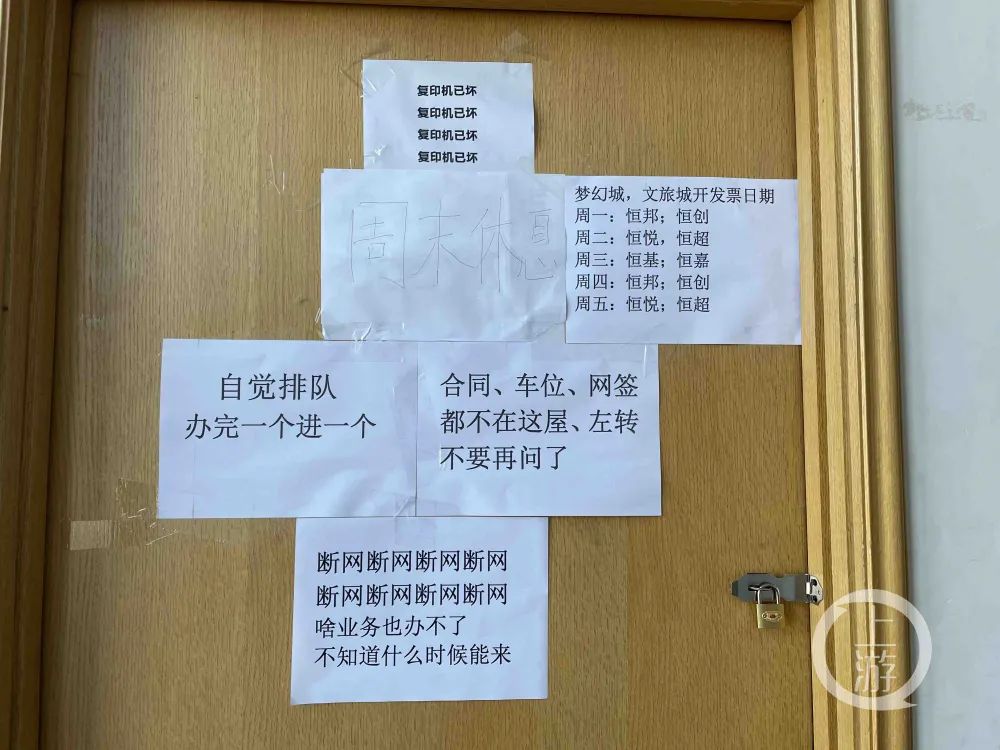 复印机已坏
复印机已坏
复印机已坏
复印机已坏
周末休息
梦幻城，文旅城开发票日期
周一：恒邦；恒创
周二：恒悦，恒超
周三：恒基；恒嘉
周四：恒邦；恒创
周五：恒悦；恒超
自觉排队
办完一个进一个
合同、车位、网签
都不在这屋、左转
不要再问了
断网断网断网断网
断网断网断网断网
啥业务也办不了
不知道什么时候能来
上游